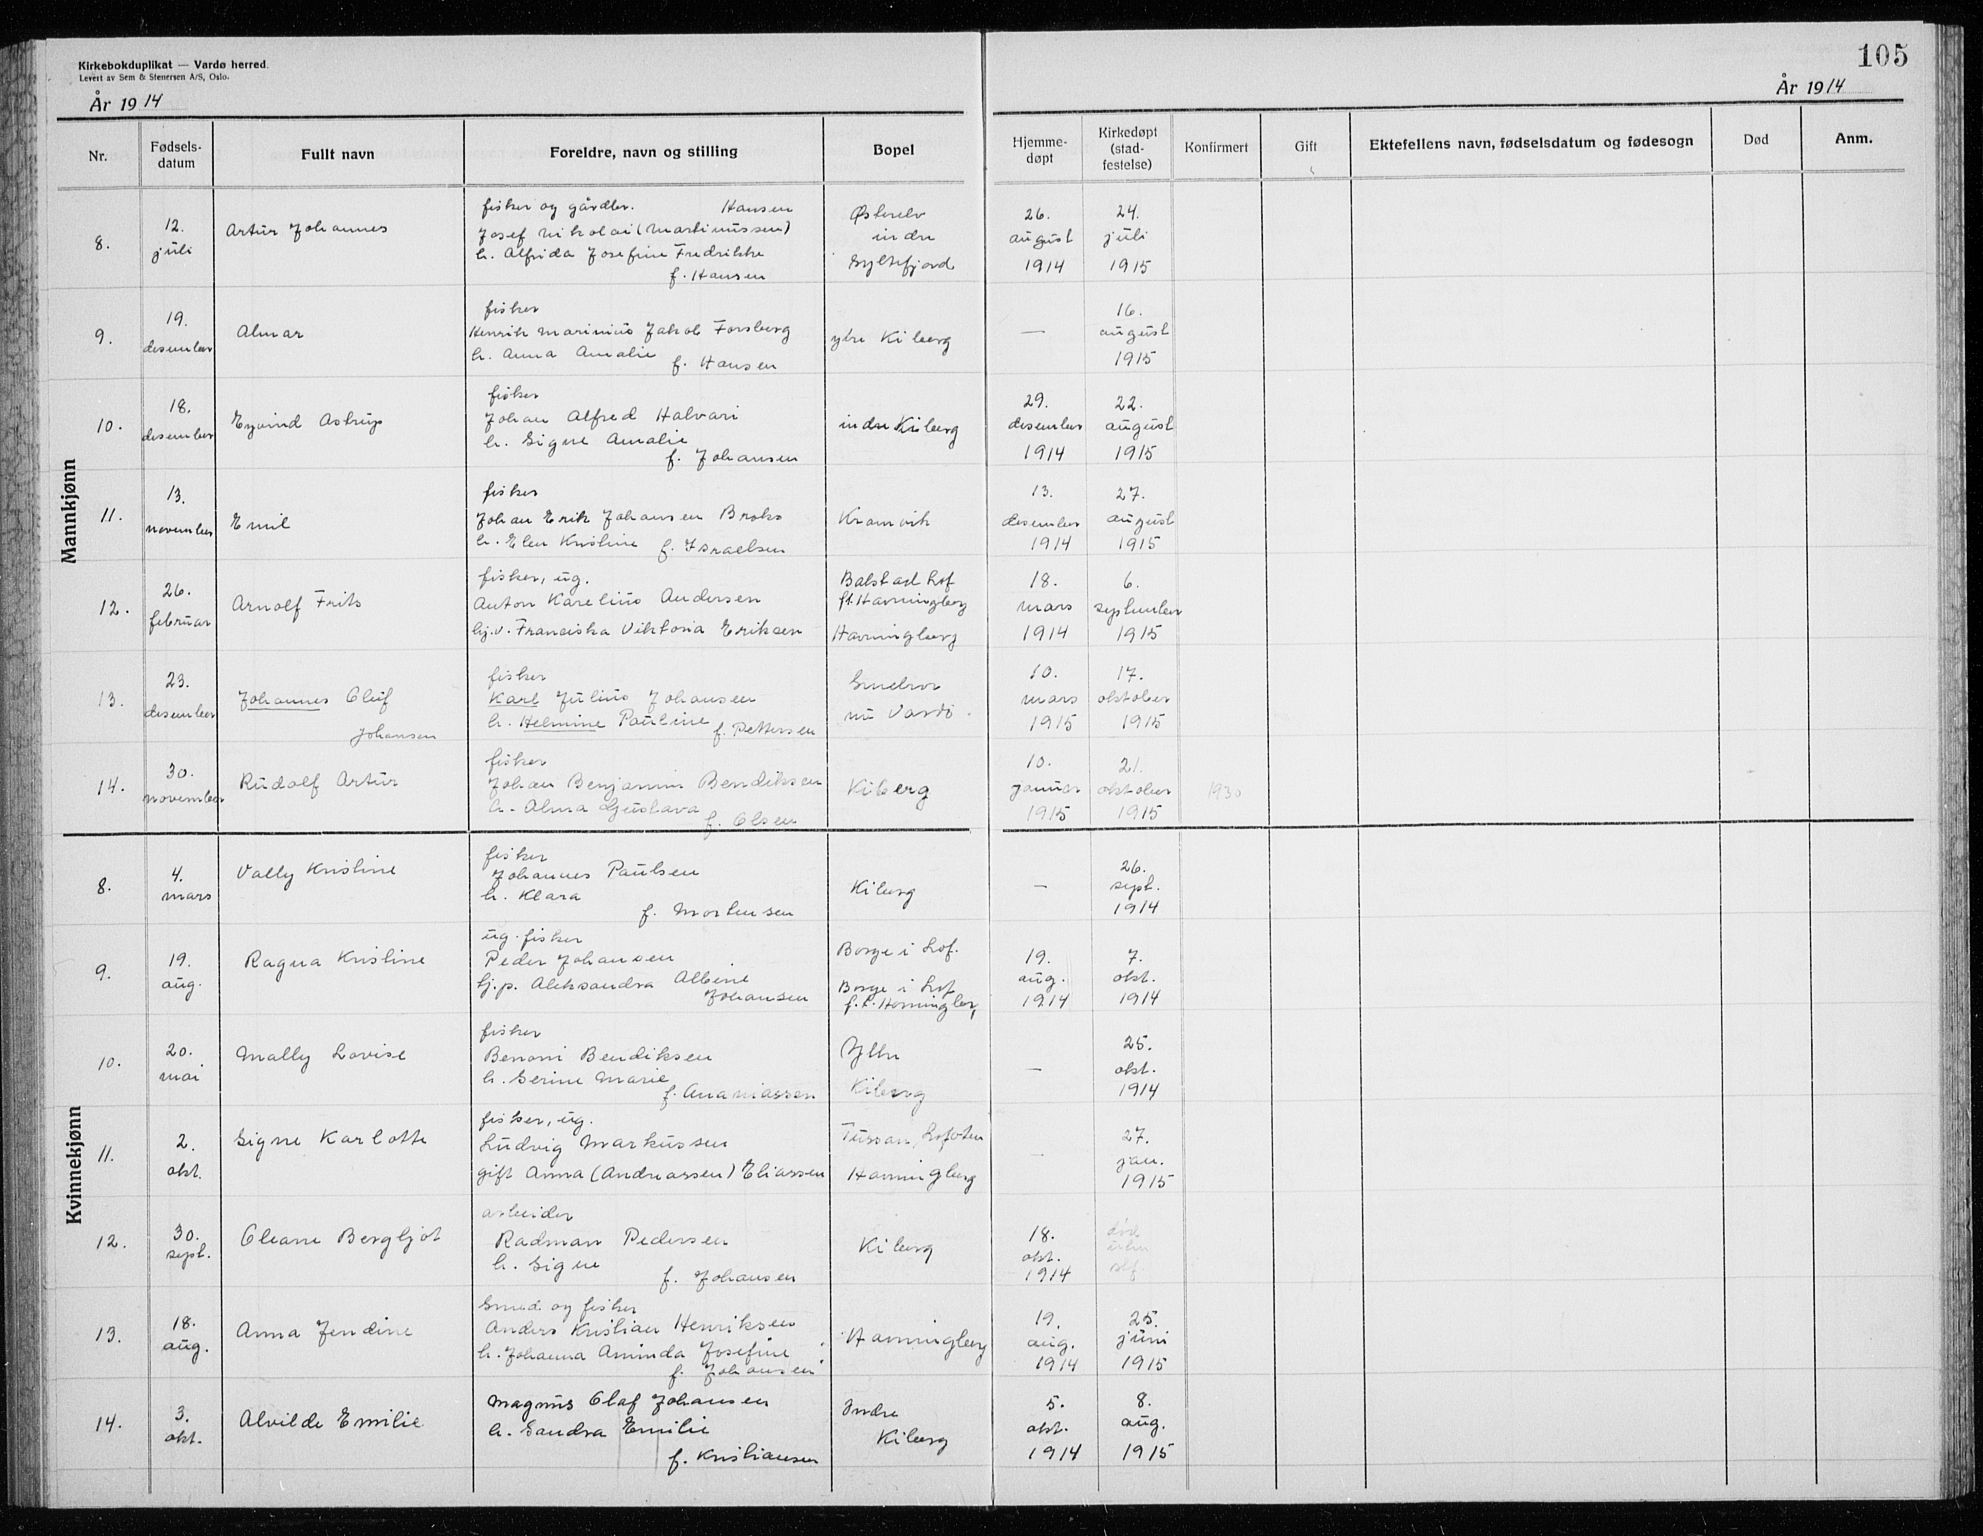 Kirkebokduplikat — Vardø herred.
Levert av Sem & Stenersen A/S, Oslo.
105
År 1914
År 1914
Nr.
Fødsels-
datum
Fullt navn
Foreldre, navn og stilling
Bopel
Hjemme-
døpt
Kirkedøpt
(stad-
festelse)
Konfirmert
Gift
Ektefellens navn, fødselsdatum og fødesogn
Død
Anm.
Mannkjønn
8.
12.
juli
Artur Johannes
fisker og gårdbr. Hansen
Josef Nikolai (Martinussen)
h. Alfrida Josefine Fredrikke
f. Hansen
Østerelv
indre
Syltefjord
26.
august
1914
24.
juli
1915
9.
19.
desember
Almar
fisker
Henrik Marinius Jakob Forsberg
h. Anna Amalie
f. Hansen
ytre Kiberg
—
16.
august
1915
10.
18.
desember
Eyvind Astrup
fisker
Johan Alfred Halvari
h. Signe Amalie
f. Johansen
indre Kiberg
29.
desember
1914
22.
august
1915
11.
13.
november
Emil
fisker
Johan Erik Johansen Broks
h. Elen Kristine f. Israelsen
Kramvik
13.
desember
1914
27.
august
1915
12.
26.
februar
Arnolf Frits
fisker, ug.
Anton Karelius Andersen
pj.v. Franciska Viktoria Eriksen
Balstad Lof
f.t. Havningberg
Havningberg
18.
mars
1914
6.
september
1915
13.
23.
desember
Johannes Oluf
Johansen
fisker
Karl Julius Johansen
h. Helmine Pauline f. Pettersen
nu Vardø.
10.
mars
1915
17.
oktober
1915
14.
30.
november
Rudolf Artur
fisker
Johan Benjamin Bendiksen
h. Alma Gustava
f. Olsen
Kiberg
10.
januar
1915
21.
oktober
1915
1930
Kvinnekjønn
8.
4.
mars
Vally Kristine
fisker
Johannes Paulsen
h. Klara
f. Mortensen
Kiberg
—
26.
sept.
1914
9.
19.
aug.
Ragna Kristine
ug. fisker
Peder Johansen
pj.p. Aleksandra Albine
Johansen
Borge i Lof.
Borge i Lof
f.t. Havningberg
19.
aug.
1914
7.
okt.
1914
10.
20.
mai
Mally Lovise
fisker
Benoni Bendiksen
h. Serine Marie
f. Ananiassen
Ytre
Kiberg
—
25.
okt.
1914
11.
2.
okt.
Signe Karlotte
fisker, ug.
Ludvig Markussen
gift Anna (Andreassen) Eliassen
Lofoten
Havningberg
—
27.
jan.
1915
12.
30.
sept.
Oleane Bergljot
arbeider
Radman Pedersen
h. Signe
f. Johansen
Kiberg
18.
okt.
1914
død
uten
stf.
13.
18.
aug.
Anna Jendine
Smed og fisker
Anders Kristian Henriksen
h. Johanna Aminda Josefine
f. Johansen
Havningberg
19.
aug.
1914
25.
juni
1915
14.
3.
okt.
Alvilde Emilie
Magnus Olaf Johansen
h. Sandra Emilie
f. Kristiansen
Indre
Kiberg
5.
okt.
1914
8.
aug.
1915